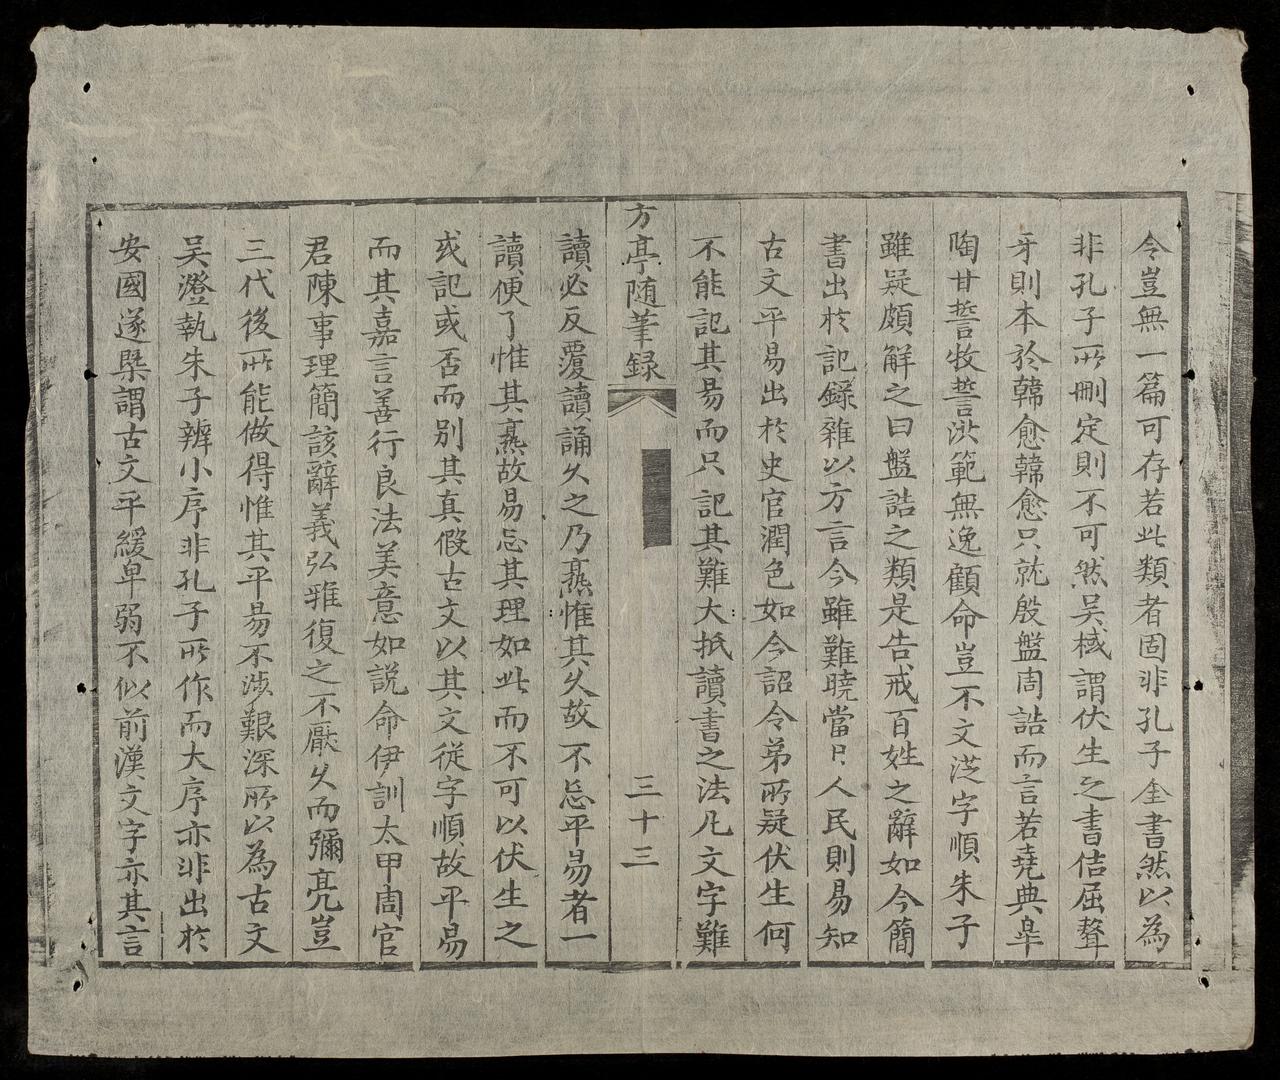 今豈無一篇可存若此類者固非孔子全書然以為
非孔子所刪定則不可然吳棫謂伏生之書佶屈聱
牙則本於韓愈韓愈只就殷盤周誥而言若堯典皐
陶甘誓牧誓洪範無逸顧命豈不文從字順朱子
雖疑頗觧之曰盤誥之類是告戒百姓之辭如今簡
書出於記錄雜以方言今雖難曉當日人民則易知
古文平易出於史官潤色如今詔令弟所疑伏生何
不能記其易而只記其難大抵讀書之法凡文字難
方亭随筆録
三十三
讀必反覆讀誦久之乃熟惟其久故不忘平易者一
讀便了惟其熟故易忘其理如此而不可以伏生之
或記或否而別其真假古文以其文從字順故平易
而其嘉言善行良法美意如說命伊訓太甲周官
君陳事理簡該辭義弘雅復之不厭久而彌亮豈
三代後所能做得惟其平易不涉艱深所以為古文
吴澄執朱子辨小序非孔子所作而大序亦非出於
安國遂槩謂古文平緩卑弱不似前漢文字亦其言